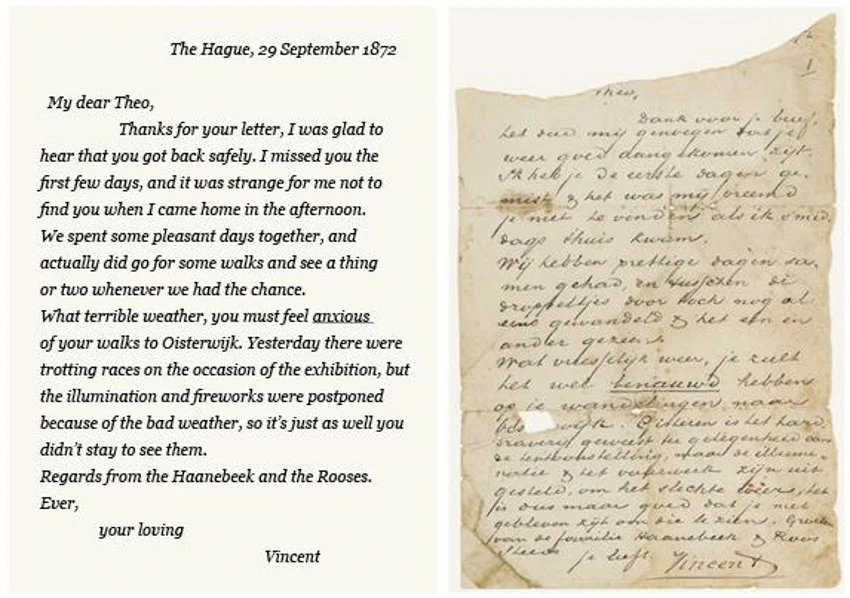 The Hague, 29 September 1872
My dear Theo,
Thanks for your letter, I was glad to
hear that you got back safely. I missed you the
first few days, and it was strange for me not to
find you when I came home in the afternoon.
We spent some pleasant days together, and
actually did go for some walks and see a thing
or two whenever we had the chance.
What terrible weather, you must feel anxious
of your walks to Oisterwijk. Yesterday there were
trotting races on the occasion of the exhibition, but
the illumination and fireworks were postponed
because of the bad weather, so it's just as well you
didn't stay to see them.
Regards from the Haanebeek and the Rooses.
Ever,
your loving
Vincent
1
Theo,
Dank voor je brief,
het deed mij genoegen dat je
weer goed aangekomen zijt.
Ik heb je de eerste dagen ge-
mist & het was mij vreemd
je niet te vinden als ik s'mid-
dags thuis kwam.
Wij hebben prettige dagen sa-
men gehad, en tusschen de
droppeltjes door toch nog al
eens gewandeld & het een en
ander gezien.
Wat vreesselijk weer, je zult
het wel benauwd hebben
op je wandelingen naar
wijk. Gisteren is het hard-
draverij geweest ter gelegenheid van
de tentoonstelling, maar de illumi-
natie & het vuurwerk zijn uit-
gesteld, om het slechte weer, het
is dus maar goed dat je niet
gebleven zijt om die te zien. Groeten
van de familie Haanebeek & Roos
Steeds
je liefh. Vincent